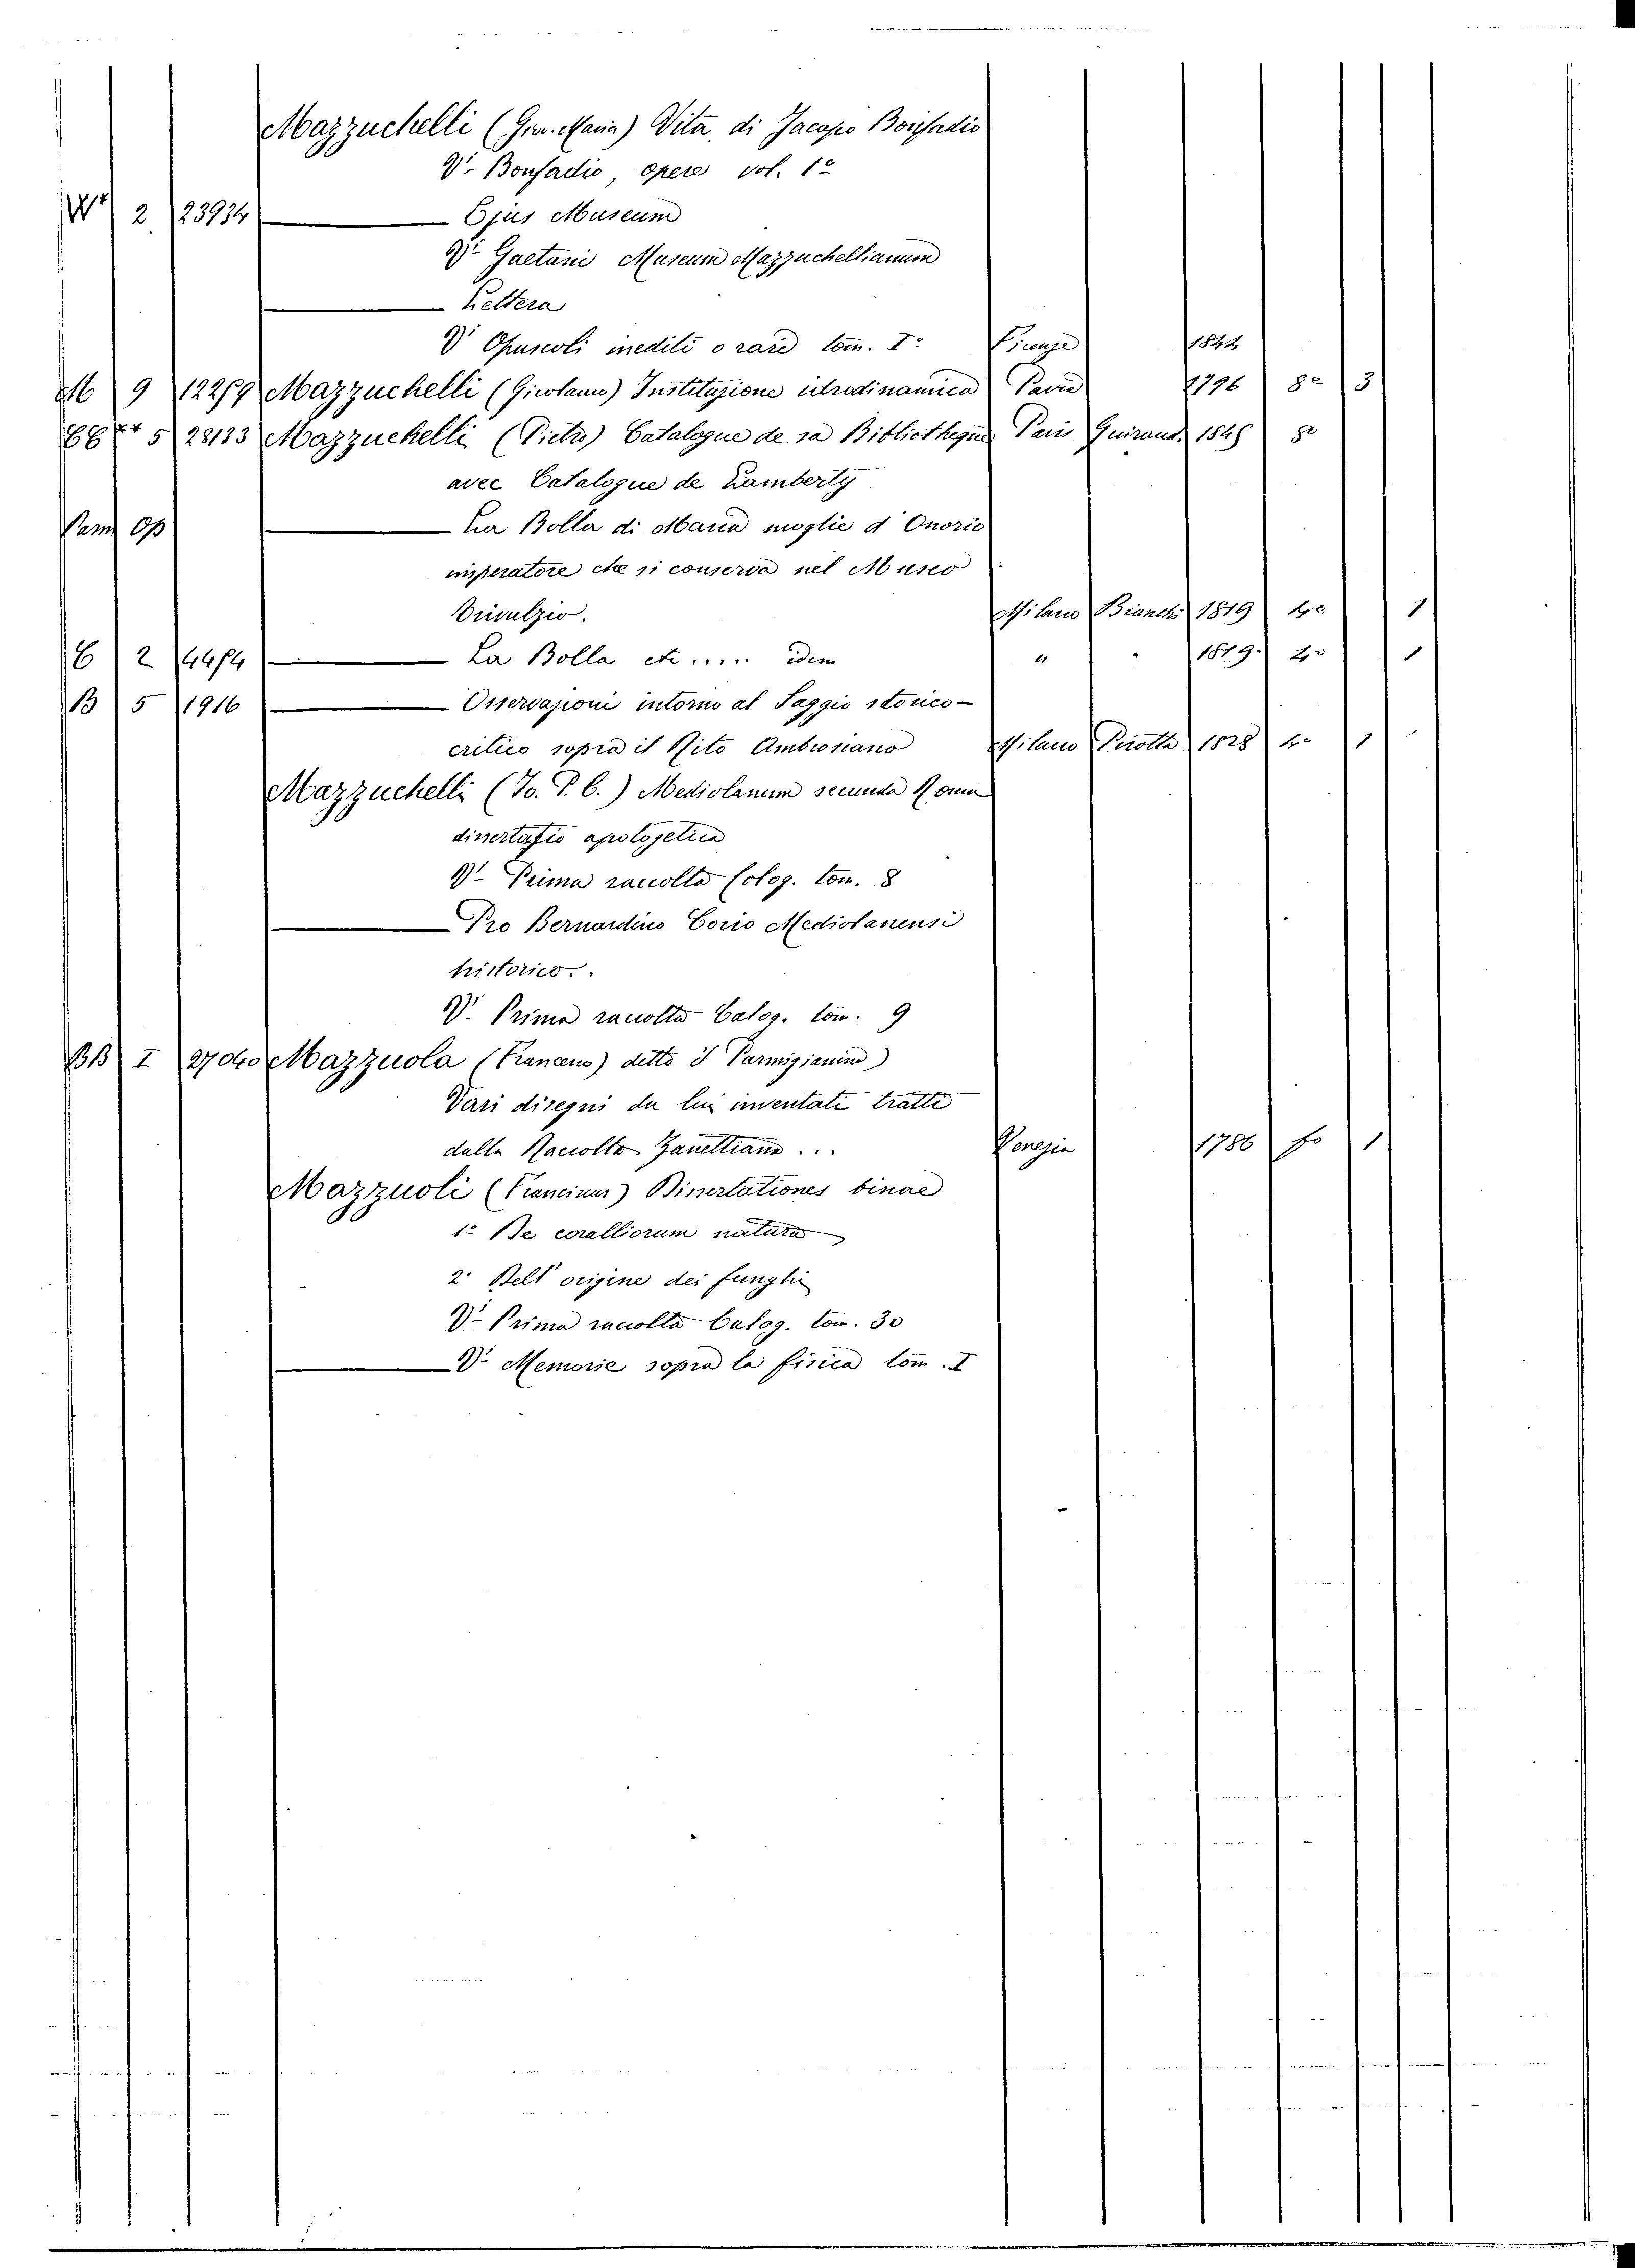 Mazzuchelli (Gio. Maria) Vita di Jacopo Bonfadio
V. Bonfadio, opere vol. 1º
2 23934 Ejus Museum
V. Gaetani Museum Mazzuchellianum
Lettera
V. Opuscoli inediti o rari tom. Iº Firenze 1844
M 9 Mazzuchelli (Girolamo) Instituzione idrodinamica Pavia 1796 8º 3
5 28133 Mazzuchelli (Pietro) Catalogue de sa Bibliotheque Paris Guiraud. 8º
avec Catalogue de Lamberty
Op La Bolla di Maria moglie d'Onorio
imperatore che si conserva nel Museo
Trivulzio. Milano Bianchi 1819 4º 1
C 2 La Bolla etc ..... idem " " 1819. 4º 1
B 5 1916 Osservazioni intorno al Saggio storico-
critico sopra il Rito Ambrosiano Milano Pirotta 1828 4º 1
Mazzuchelli (Jo. P. C.) Mediolanum secunda Roma
dissertatio apologetica
V. Prima raccolta Calog. tom. 8
Pro Bernardino Corio Mediolanensi
historico..
V. Prima raccolta Calog. tom. 9
BB I 27040 Mazzuola (Francesco) detto il Parmigianino)
Vari disegni da lui inventati tratti
dalla Raccolta Zanettiana ... Venezia 1786 fo 1
Mazzuoli (Francinus) Dissertationes binae
1º De coralliorum natura
2º Dell' origine dei funghi
V. Prima raccolta Calog. tom. 30
V. Memorie sopra la fisica tom. I